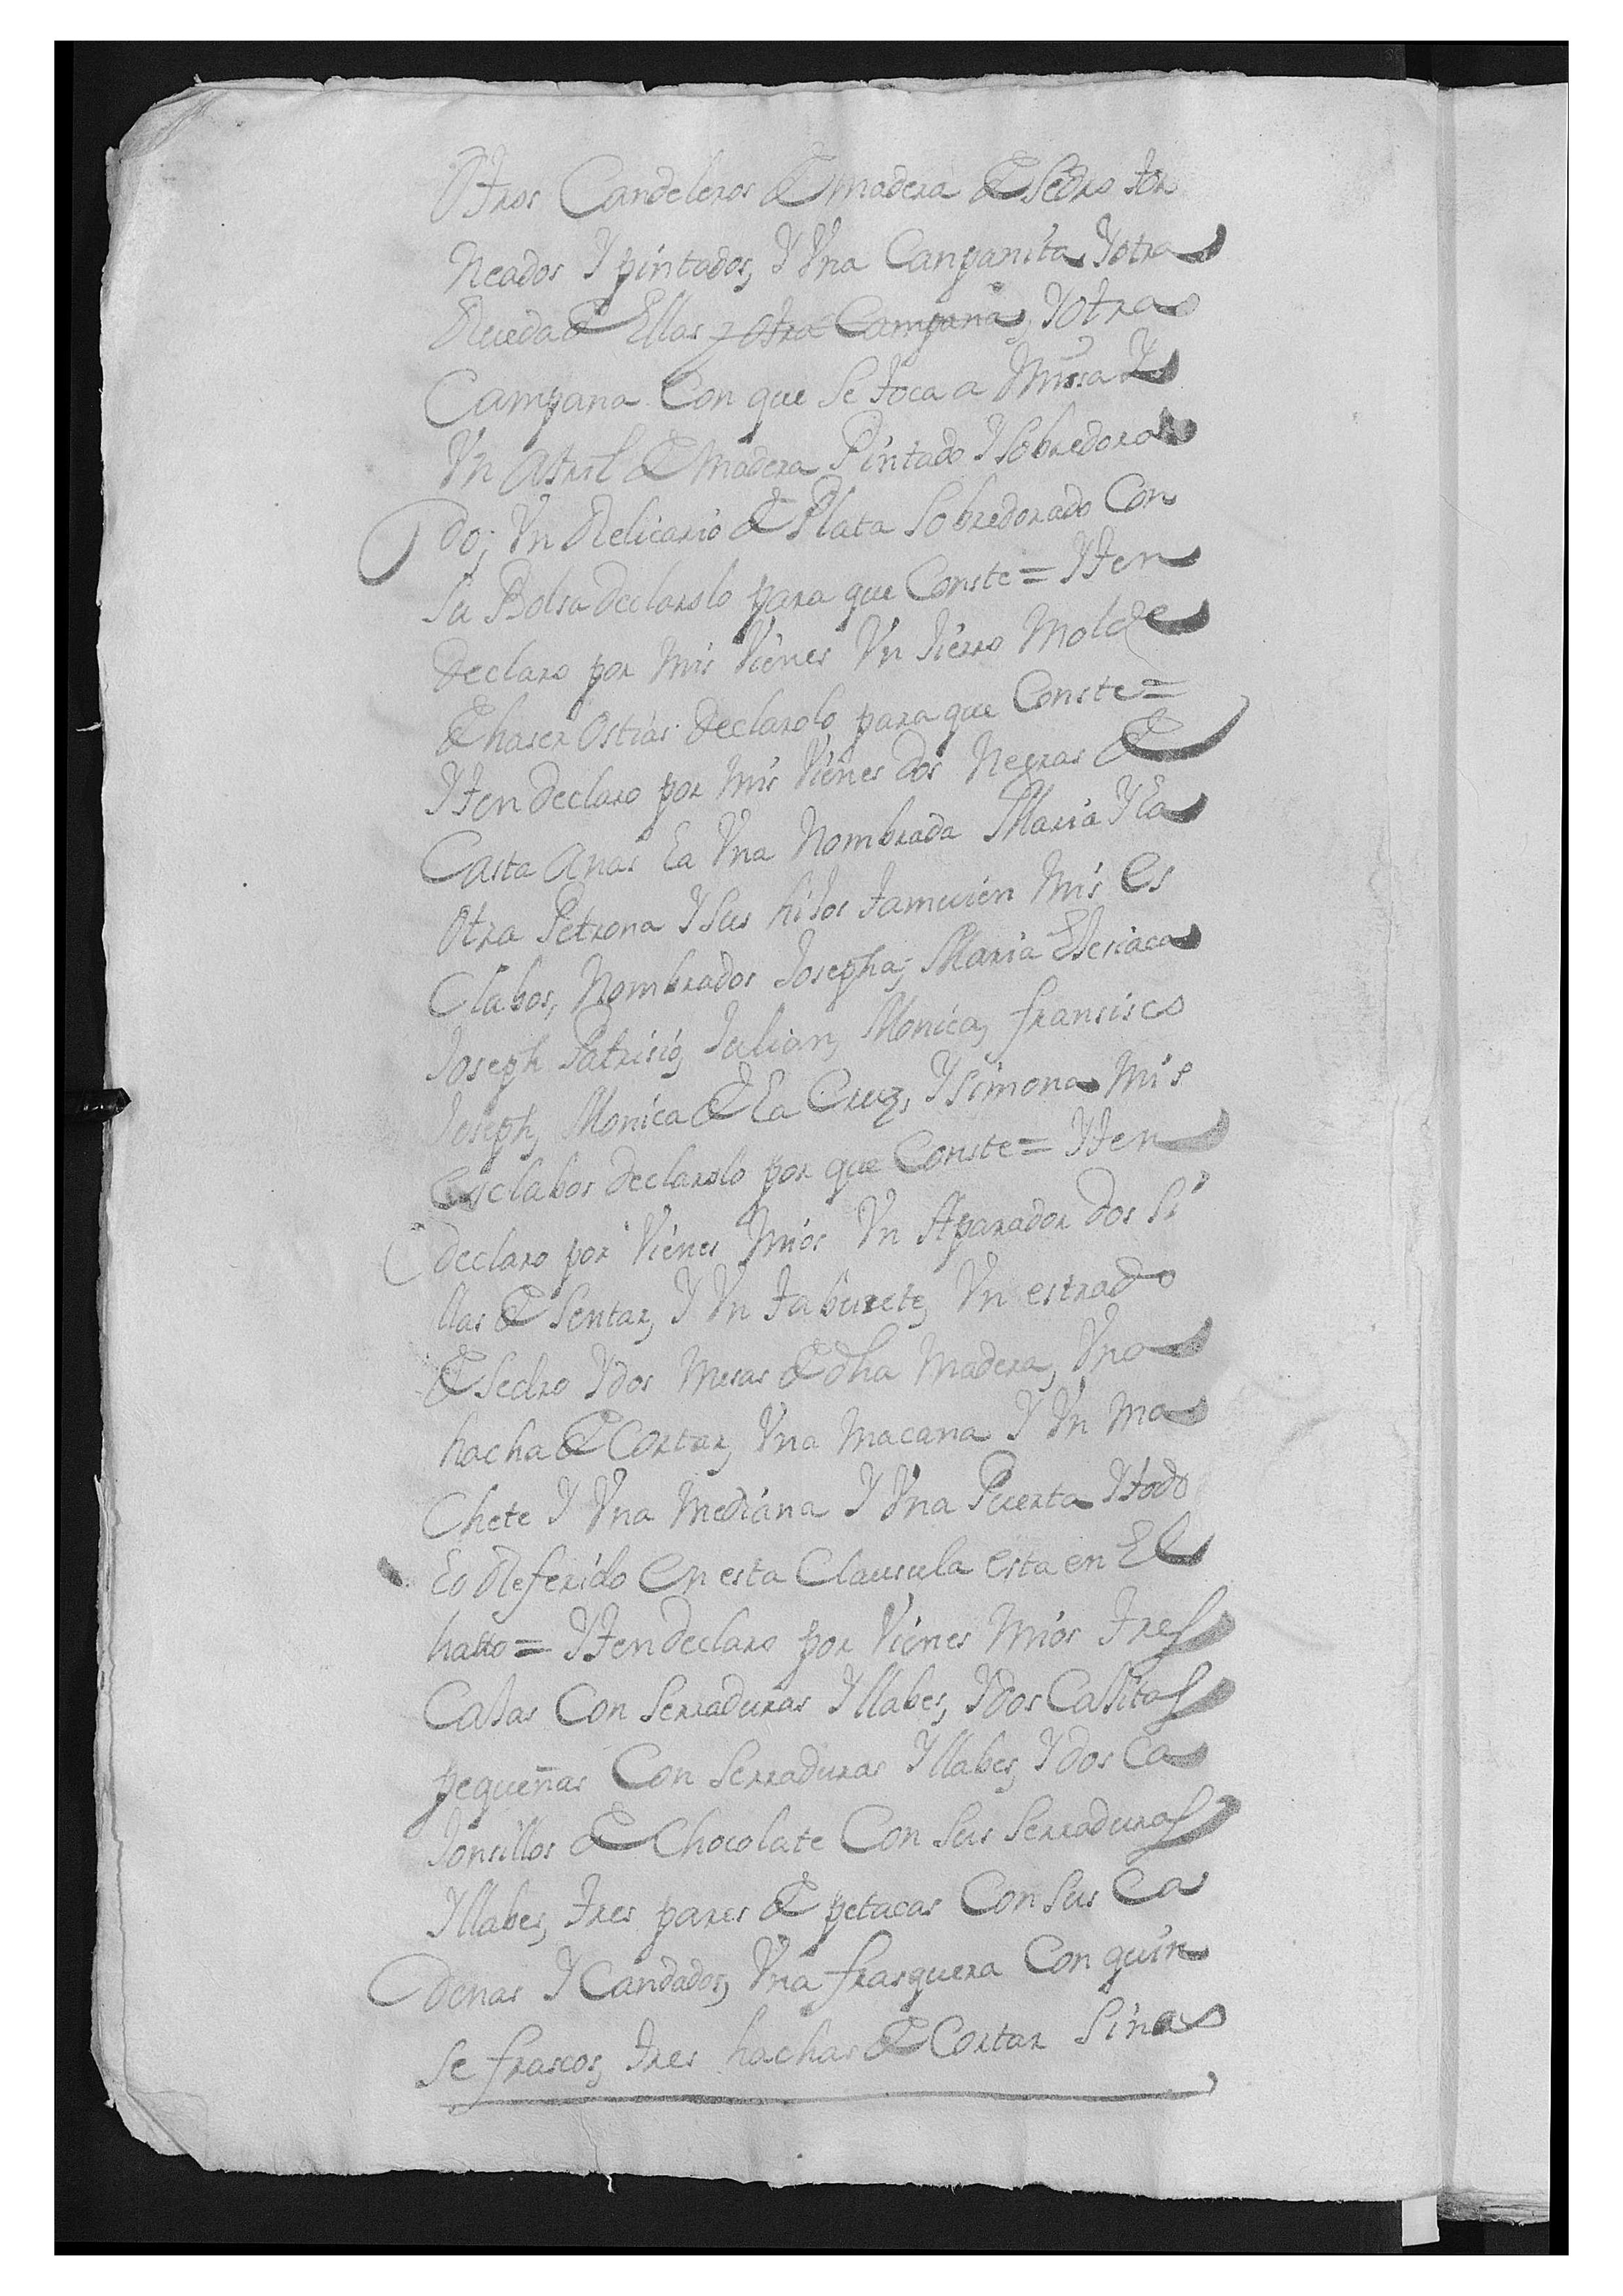 Otros Candeleros de madera de sedro tor
neados Y pintados, Y Vna Canpanita, Y otra
Rueda de Ellas y otra Campana, Y otra
Campana Con que Se toca a Missa Y
Vn atril de madera Pintado Y Sobredora
do; Vn Relicario de Plata Sobredorado Con
Su Bolsa declarolo para que Conste = Yten
declaro por mis Vienes Vn Jierro Molde
de haser Ostias declarolo para que Conste =
Yten declaro por mis Vienes dos Negras de
Casta aras La Vna Nombrada Maria Y La
Otra Petrona Y Sus hijos tamvien mis Es
Clabos, Nombrados Josepha; Maria
Joseph Patrisio, Julian, Monica, fransisco
Joseph, Monica de La Cruz, Y Simona mis
Esclabos declarolo por que Conste = Yten
declaro por Vienes mios Vn Aparador dos Si
llas de Sentar, Y Vn taburete, Vn estrado
de Sedro Y dos mesas de dha madera, Vna
hacha de Cortar, Vna macana Y Vn ma
Chete Y Vna mediana Y Vna Puerta Y todo
Lo Referido En esta Clausula esta en El
hatto = Yten declaro por Vienes mios tres
Cajas Con Serraduras Y llabes, Y dos Cajitas
pequeñas Con Serraduras Y llabes, Y dos Ca
jonsillos de Chocolate Con Sus Serraduras
Y llabes, tres pares de petacas Con Sus Ca
denas Y Candados, Vna frasquera Con quin
Se frascos, tres hachas de Cortar Sinco